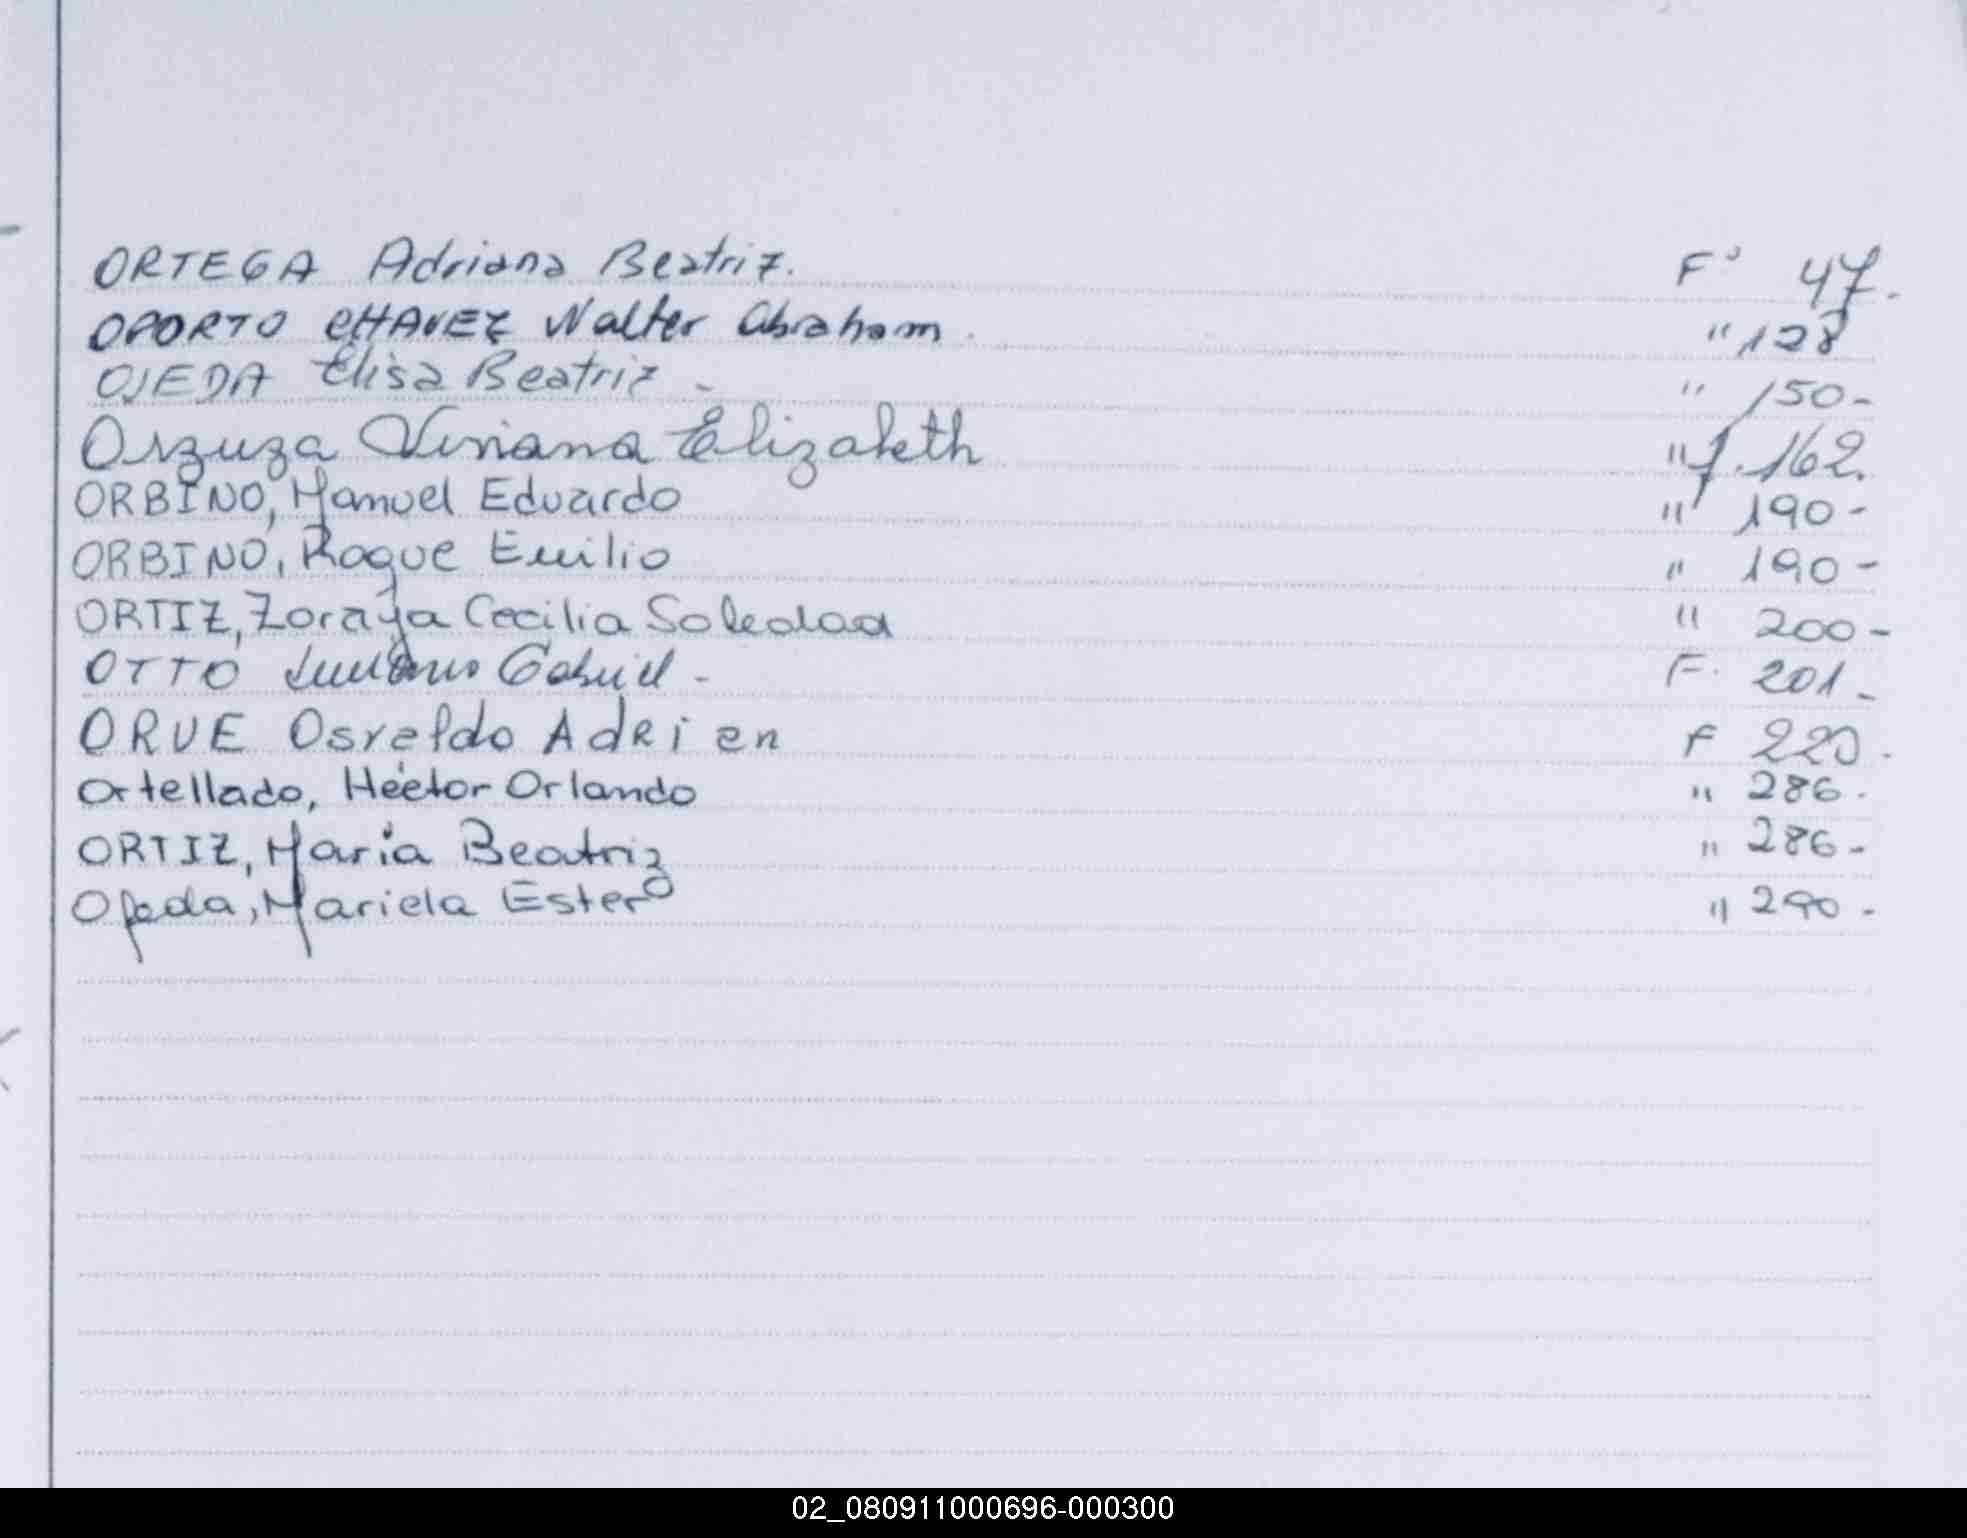 ORTEGA Adriana Beatriz. Fº 47.-
OPORTO CHAVEZ Walter Abraham. " 128
OJEDA Elisa Beatriz - " 150-
Orzuza Viviana Elizabeth " f. 162.
ORBINO, Manuel Eduardo " 190-
ORBINO, Roque Emilio " 190-
ORTIZ, Zoraya Cecilia Soledad " 200-
OTTO Gabriel - F. 201-
ORVE Osvaldo Adrian F
Ortellado, Héctor Orlando " 286.
ORTIZ, María Beatriz " 286-
Ojeda, Mariela Ester " 290-
02_080911000696-000300